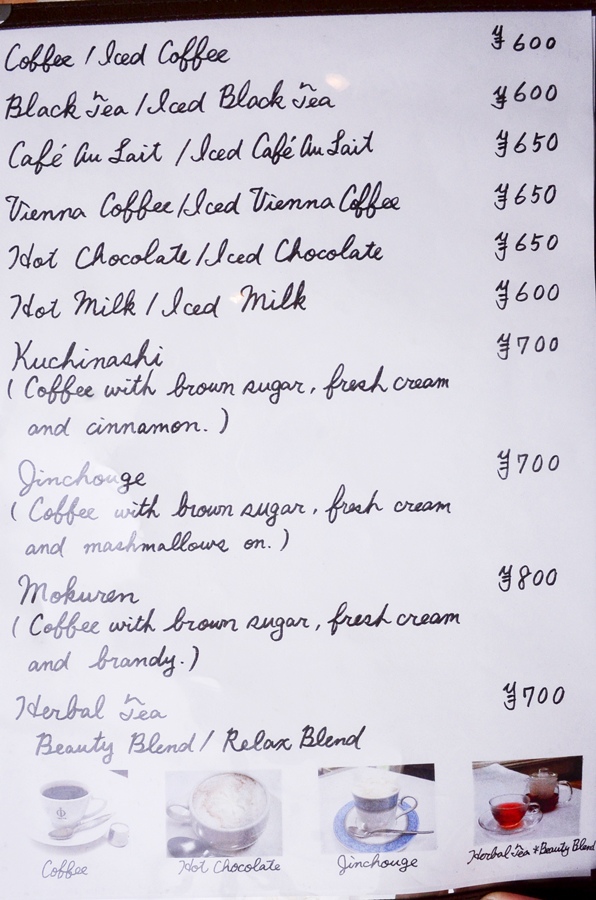 Coffee / Iced Coffee ¥600
Black Tea / Iced Black Tea ¥600
Café Au Lait / Iced Café Au Lait ¥650
Vienna Coffee / Iced Vienna Coffee ¥650
Hot Chocolate / Iced Chocolate ¥650
Hot Milk / Iced Milk ¥600
Kuchinashi ¥700
( Coffee with brown sugar, fresh cream
and cinnamon. )
Jinchouge ¥700
( Coffee with brown sugar, fresh cream
and mashmallows on. )
Mokuren ¥800
( Coffee with brown sugar, fresh cream
and brandy. )
Herbal Tea ¥700
Beauty Blend / Relax Blend
Coffee
Hot Chocolate
Jinchouge
Herbal Tea *Beauty Blend